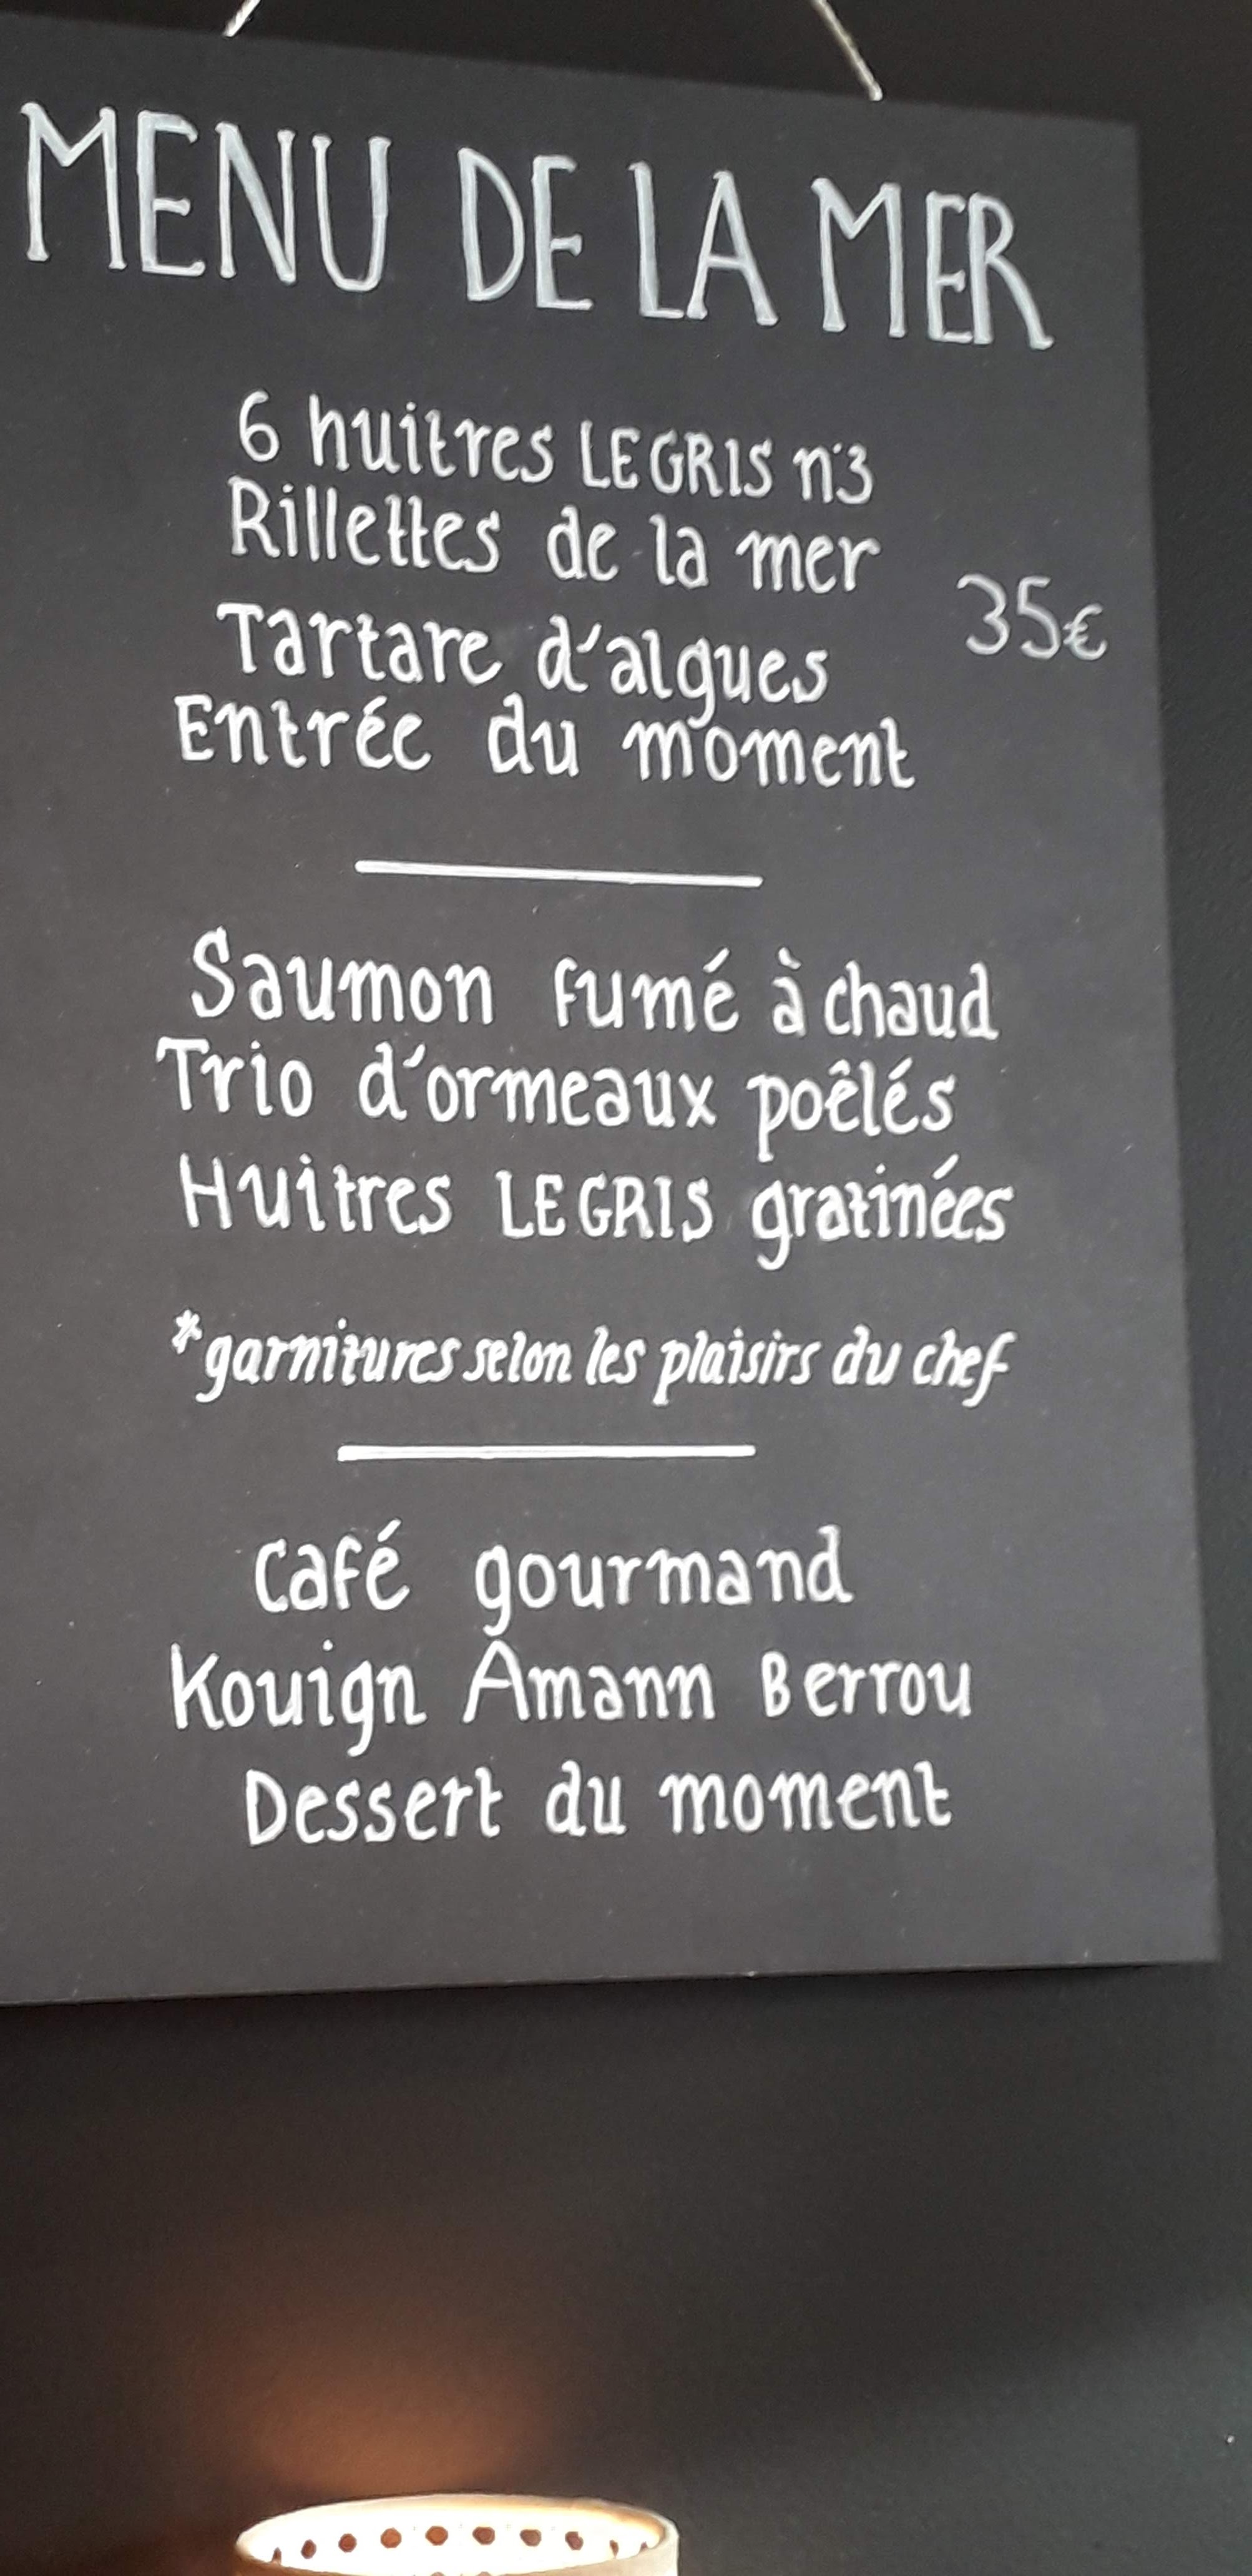 MENU DE LA MER
6 huitres LEGRIS n°3
Rillettes de la mer
35€
Tartare d'algues
Entrée du moment
Saumon fumé à chaud
Trio d'ormeaux poêlés
Huitres LEGRIS gratinées
*garnitures selon les plaisirs du chef
Café gourmand
Kouign Amann Berrou
Dessert du moment